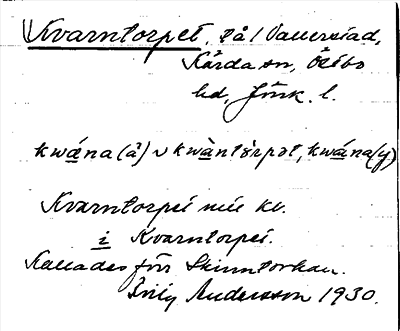 Kvarntorpet, på Vallerstad,
Kärda sn, Östbo
hd, Jönk. l.
kwána(å) ∿ kwàntòrpət, kwána(y)
Kvarntorpet
i Kvarntorpet.
Kallades förr Skinntorkan.
Andersson 1930.